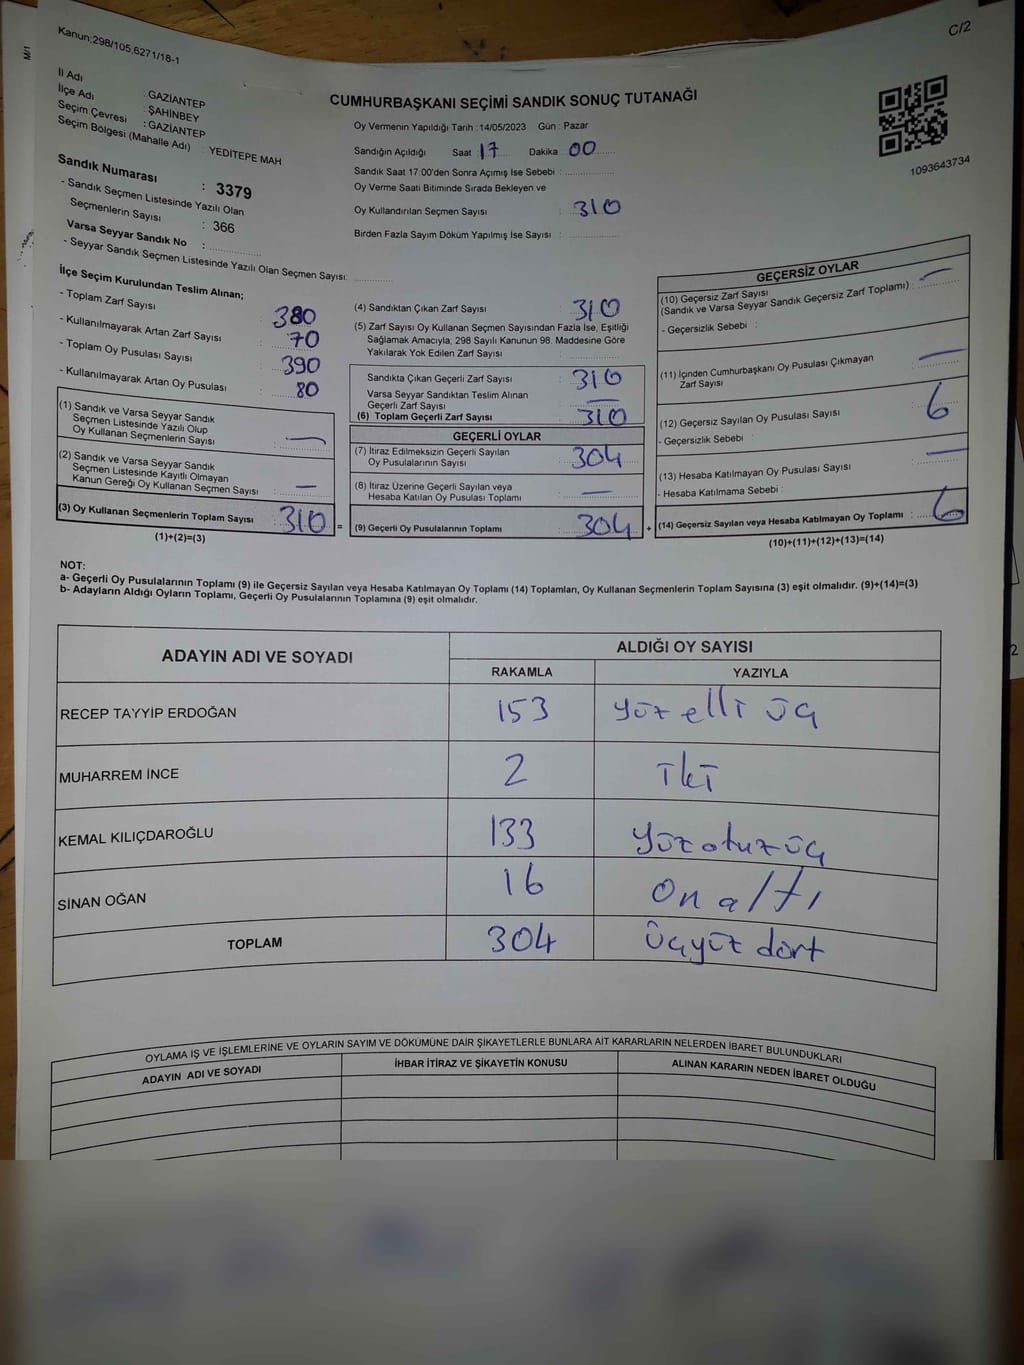 C/2
Kanun;298/105,6271/18-1
İl Adı : GAZİANTEP
İlçe Adı : ŞAHİNBEY
Seçim Çevresi : GAZİANTEP
Seçim Bölgesi (Mahalle Adı) YEDİTEPE MAH
Sandık Numarası : 3379
- Sandık Seçmen Listesinde Yazılı Olan
Seçmenlerin Sayısı : 366
Varsa Seyyar Sandık No :
- Seyyar Sandık Seçmen Listesinde Yazılı Olan Seçmen Sayısı:
CUMHURBAŞKANI SEÇİMİ SANDIK SONUÇ TUTANAĞI
Oy Vermenin Yapıldığı Tarih : 14/05/2023 Gün : Pazar
Sandığın Açıldığı Saat 17 Dakika 00
Sandık Saat 17:00'den Sonra Açımış İse Sebebi :
Oy Verme Saati Bitiminde Sırada Bekleyen ve
Oy Kullandırılan Seçmen Sayısı : 310
Birden Fazla Sayım Döküm Yapılmış İse Sayısı :
1093643734
İlçe Seçim Kurulundan Teslim Alınan;
- Toplam Zarf Sayısı : 380
- Kullanılmayarak Artan Zarf Sayısı : 70
- Toplam Oy Pusulası Sayısı : 390
- Kullanılmayarak Artan Oy Pusulası : 80
(1) Sandık ve Varsa Seyyar Sandık
Seçmen Listesinde Yazılı Olup
Oy Kullanan Seçmenlerin Sayısı : —
(2) Sandık ve Varsa Seyyar Sandık
Seçmen Listesinde Kayıtlı Olmayan
Kanun Gereği Oy Kullanan Seçmen Sayısı : —
(3) Oy Kullanan Seçmenlerin Toplam Sayısı : 310 =
(1)+(2)=(3)
(4) Sandıktan Çıkan Zarf Sayısı : 310
(5) Zarf Sayısı Oy Kullanan Seçmen Sayısından Fazla İse, Eşitliği
Sağlamak Amacıyla, 298 Sayılı Kanunun 98. Maddesine Göre
Yakılarak Yok Edilen Zarf Sayısı :
Sandıkta Çıkan Geçerli Zarf Sayısı : 310
Varsa Seyyar Sandıktan Teslim Alınan
Geçerli Zarf Sayısı : —
(6) Toplam Geçerli Zarf Sayısı : 310
GEÇERLİ OYLAR
(7) İtiraz Edilmeksizin Geçerli Sayılan
Oy Pusulalarının Sayısı : 304
(8) İtiraz Üzerine Geçerli Sayılan veya
Hesaba Katılan Oy Pusulası Toplamı : —
(9) Geçerli Oy Pusulalarının Toplamı : 304 +
GEÇERSİZ OYLAR
(10) Geçersiz Zarf Sayısı
(Sandık ve Varsa Seyyar Sandık Geçersiz Zarf Toplamı) : —
- Geçersizlik Sebebi :
(11) İçinden Cumhurbaşkanı Oy Pusulası Çıkmayan
Zarf Sayısı : —
(12) Geçersiz Sayılan Oy Pusulası Sayısı : 6
- Geçersizlik Sebebi :
(13) Hesaba Katılmayan Oy Pusulası Sayısı : —
- Hesaba Katılmama Sebebi :
(14) Geçersiz Sayılan veya Hesaba Katılmayan Oy Toplamı : 6
(10)+(11)+(12)+(13)=(14)
NOT:
a- Geçerli Oy Pusulalarının Toplamı (9) ile Geçersiz Sayılan veya Hesaba Katılmayan Oy Toplamı (14) Toplamları, Oy Kullanan Seçmenlerin Toplam Sayısına (3) eşit olmalıdır. (9)+(14)=(3)
b- Adayların Aldığı Oyların Toplamı, Geçerli Oy Pusulalarının Toplamına (9) eşit olmalıdır.
ADAYIN ADI VE SOYADI ALDIĞI OY SAYISI
RAKAMLA YAZIYLA
RECEP TAYYİP ERDOĞAN 153 yüz elli üç
MUHARREM İNCE 2 iki
KEMAL KILIÇDAROĞLU 133 yüzotuzüç
SİNAN OĞAN 16 on altı
TOPLAM 304 üçyüz dört
OYLAMA İŞ VE İŞLEMLERİNE VE OYLARIN SAYIM VE DÖKÜMÜNE DAİR ŞİKAYETLERLE BUNLARA AİT KARARLARIN NELERDEN İBARET BULUNDUKLARI
ADAYIN ADI VE SOYADI İHBAR İTİRAZ VE ŞİKAYETİN KONUSU ALINAN KARARIN NEDEN İBARET OLDUĞU